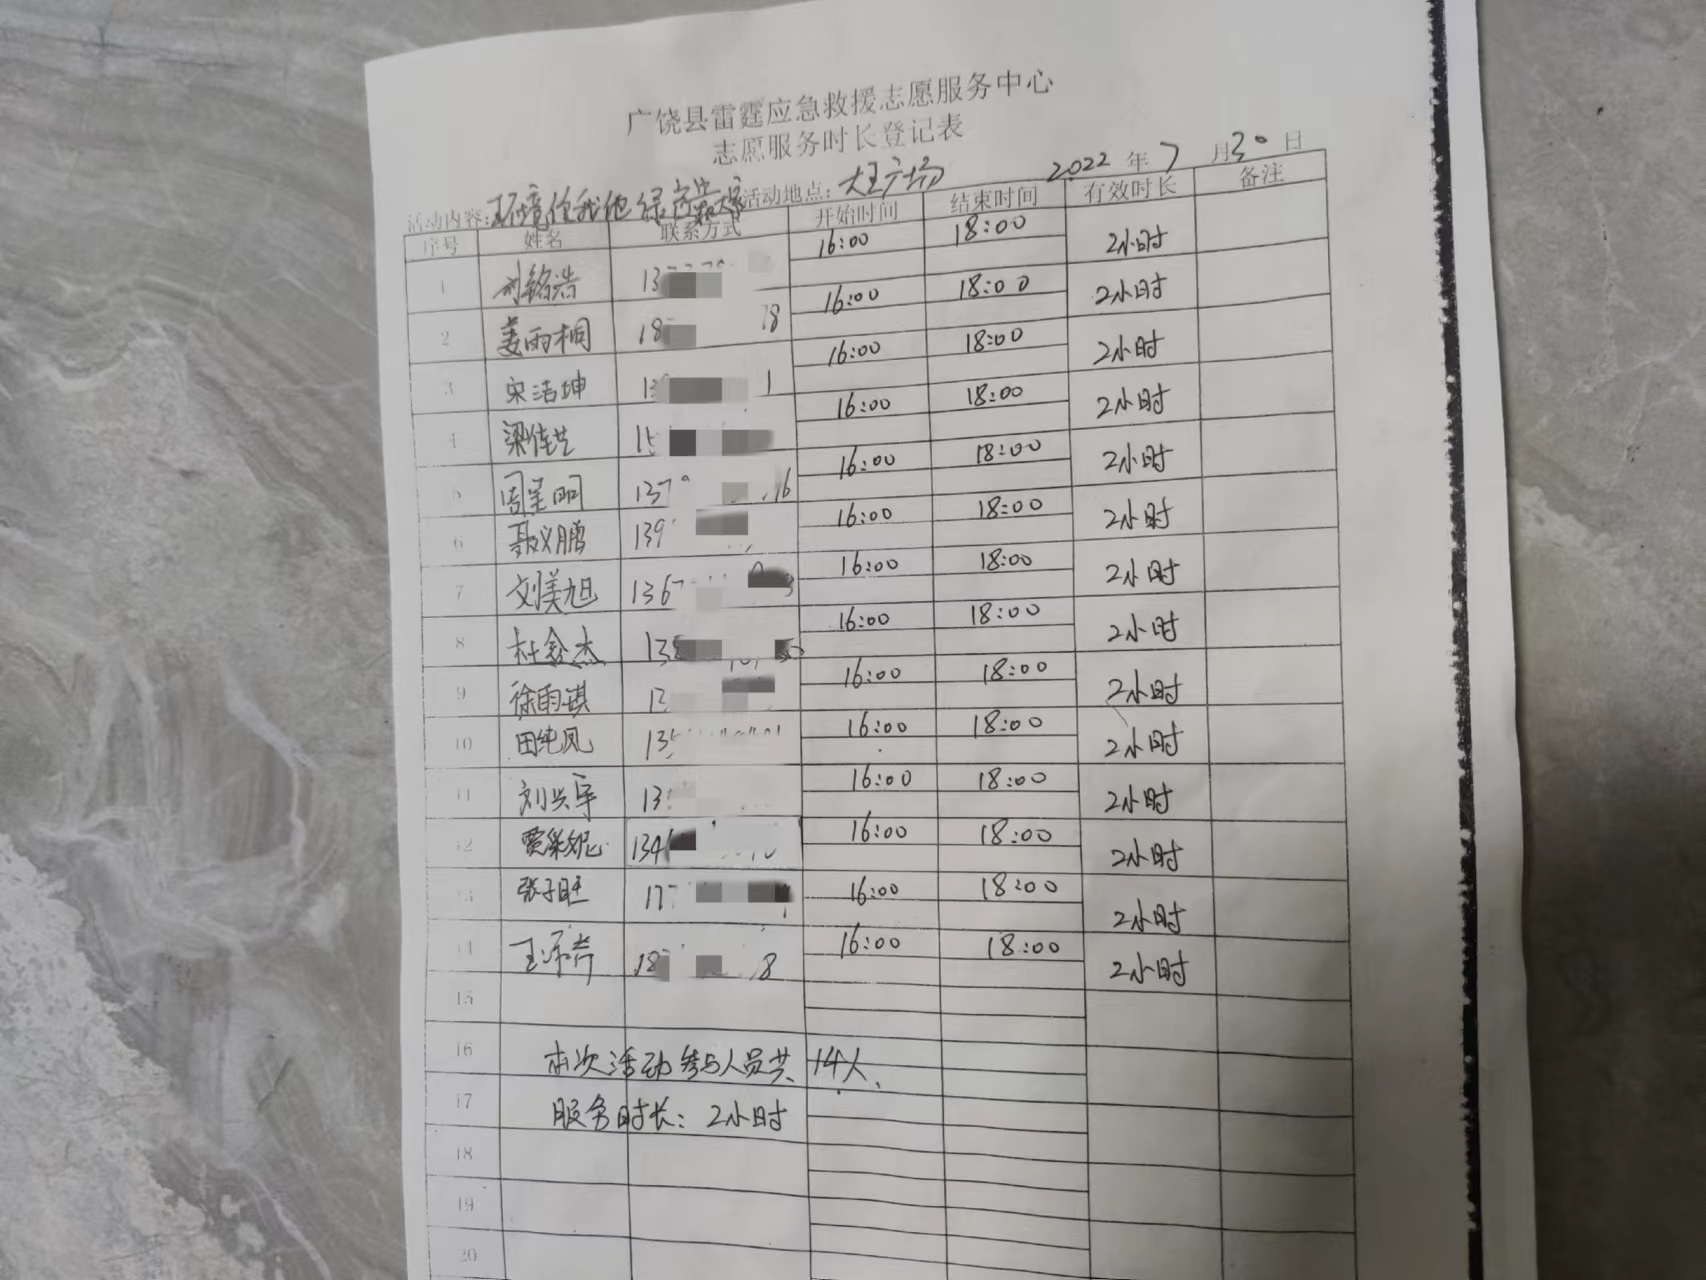 广饶县雷霆应急救援志愿服务中心
志愿服务时长登记表
2022年7月30日
活动内容:环境你我他 绿 活动地点:大王广场
序号 姓名 联系方式 开始时间 结束时间 有效时长 备注
1 刘铭浩 13 16:00 18:00 2小时
2 姜雨桐 18 8 16:00 18:00 2小时
3 宋洁坤 13 1 16:00 18:00 2小时
4 梁佳艺 15 16:00 18:00 2小时
5 周星明 137 16 16:00 18:00 2小时
6 聂义鹏 139 16:00 18:00 2小时
7 刘美旭 136 3 16:00 18:00 2小时
8 杜鑫杰 13 16:00 18:00 2小时
9 徐雨琪 13 16:00 18:00 2小时
10 田纯凤 13 16:00 18:00 2小时
11 刘兴宇 13 16:00 18:00 2小时
12 贾 妮 134 16:00 18:00 2小时
13 张子旺 17 16:00 18:00 2小时
14 王 16:00 18:00 2小时
15
16 本次活动参与人员共14人、
17 服务时长：2小时
18
19
20